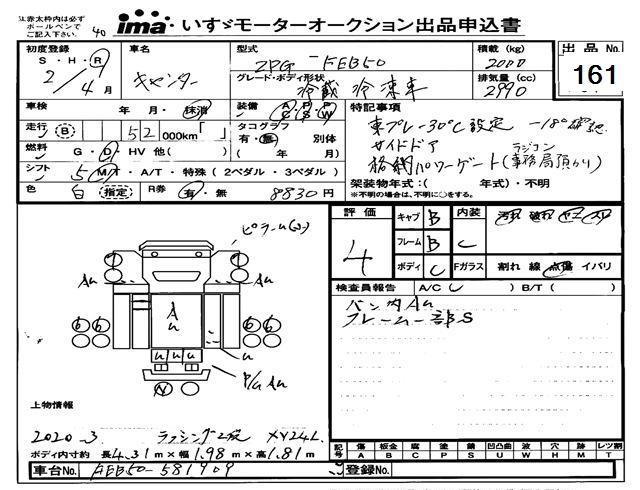 注)赤太枠内は必ず
ボールペンで
ご記入下さい。
40
ima いすゞモーターオークション出品申込書
初度登録 車名 型式 積載 (kg) 出品 No.
S・H・R キャンター 2PG-FEB50 2000 161
2/4月 グレード・ボディ形状 冷蔵冷凍車 排気量 (cc) 2990
車検 年・月・抹消 装備 A P P C S W 特記事項
走行 B 52 000km「 」 タコグラフ 有・無 別体 東プレ-30℃設定 -18°確認
燃料 G・D・HV 他( ) ( 年/ 月) サイドドア
シフト 5 M/T・A/T・特殊 (2ペダル・3ペダル) 格納パワーゲート(ラジコン 事務局預かり)
色 白 指定 R券 有・無 8830円 架装物年式:( 年式)・不明
※年式不明の場合は、不明に○をする。
評価 4 キャブ B 内装 C
フレーム B
ボディ C Fガラス 割れ 線 点傷 イバリ
検査員報告 A/C( ) B/T( )
バン内Au
フレーム一部S
Au
A
u
u u u
u
P/G Au
上物情報
2020_3 ラッシング2段 XV24L
ボディ内寸約 長4.31m×幅1.98m×高1.81m
記号 傷 板金 腐 塗 錆 凹凸曲 波 穴 跡 レツ割
A B C P S U W H M T
車台No. FEB50-581909 登録No.